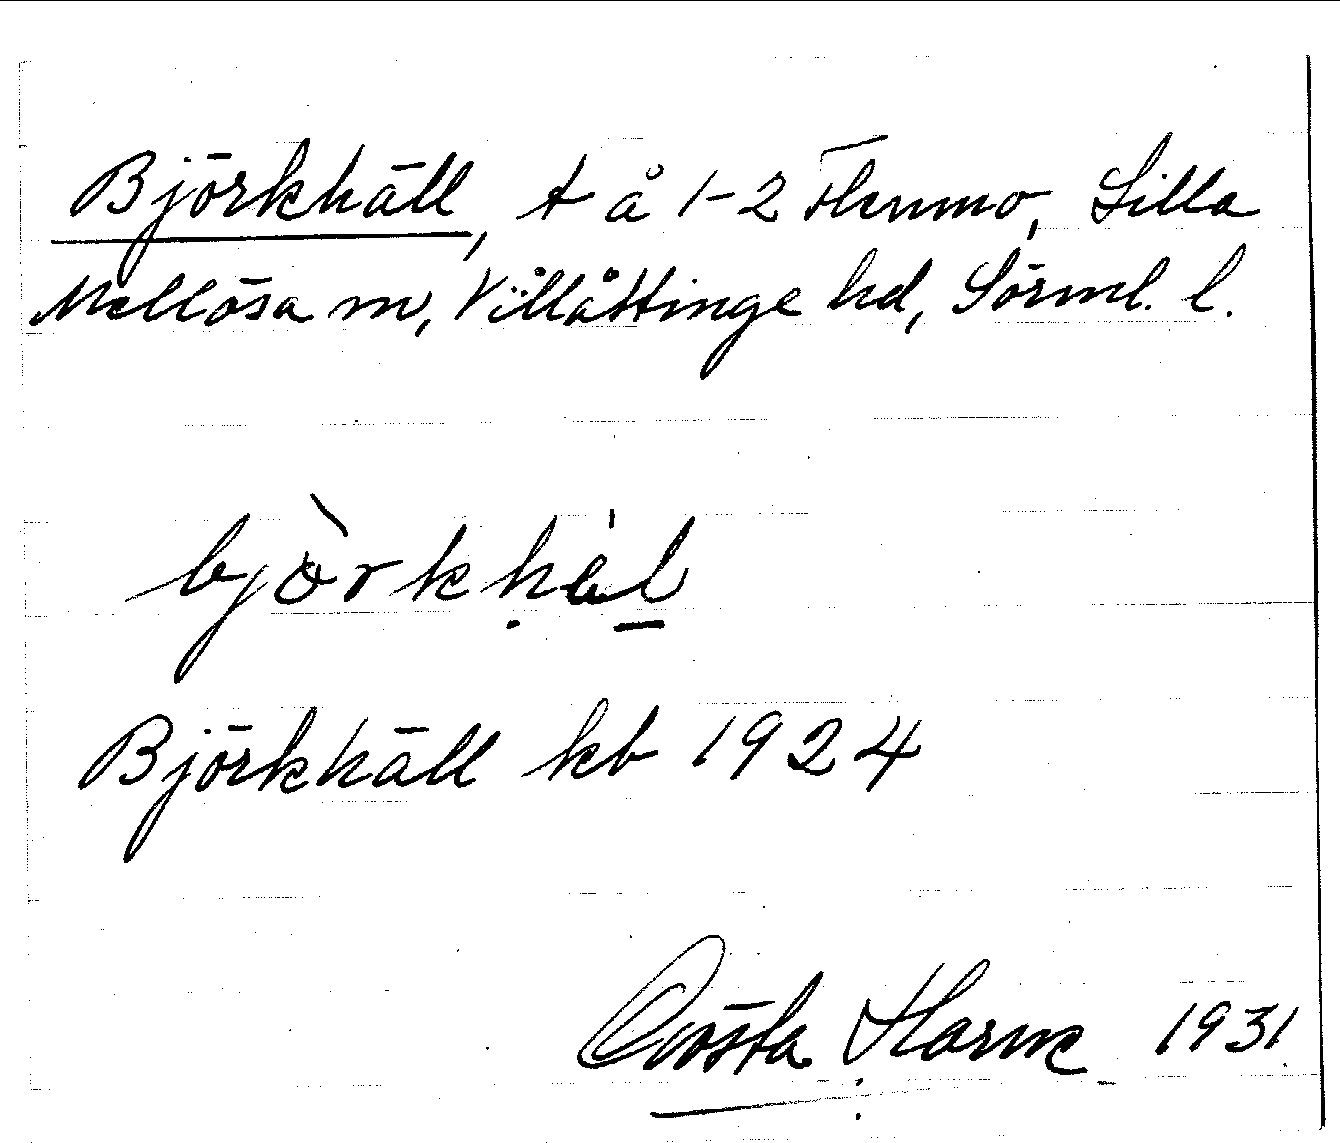 Björkhäll, t å 1-2 Flenmo, Lilla
Mellösa sn, Villåttinge hd, Sörml. l.
bjòrkhäl
Björkhäll kb 1924
Gösta 1931